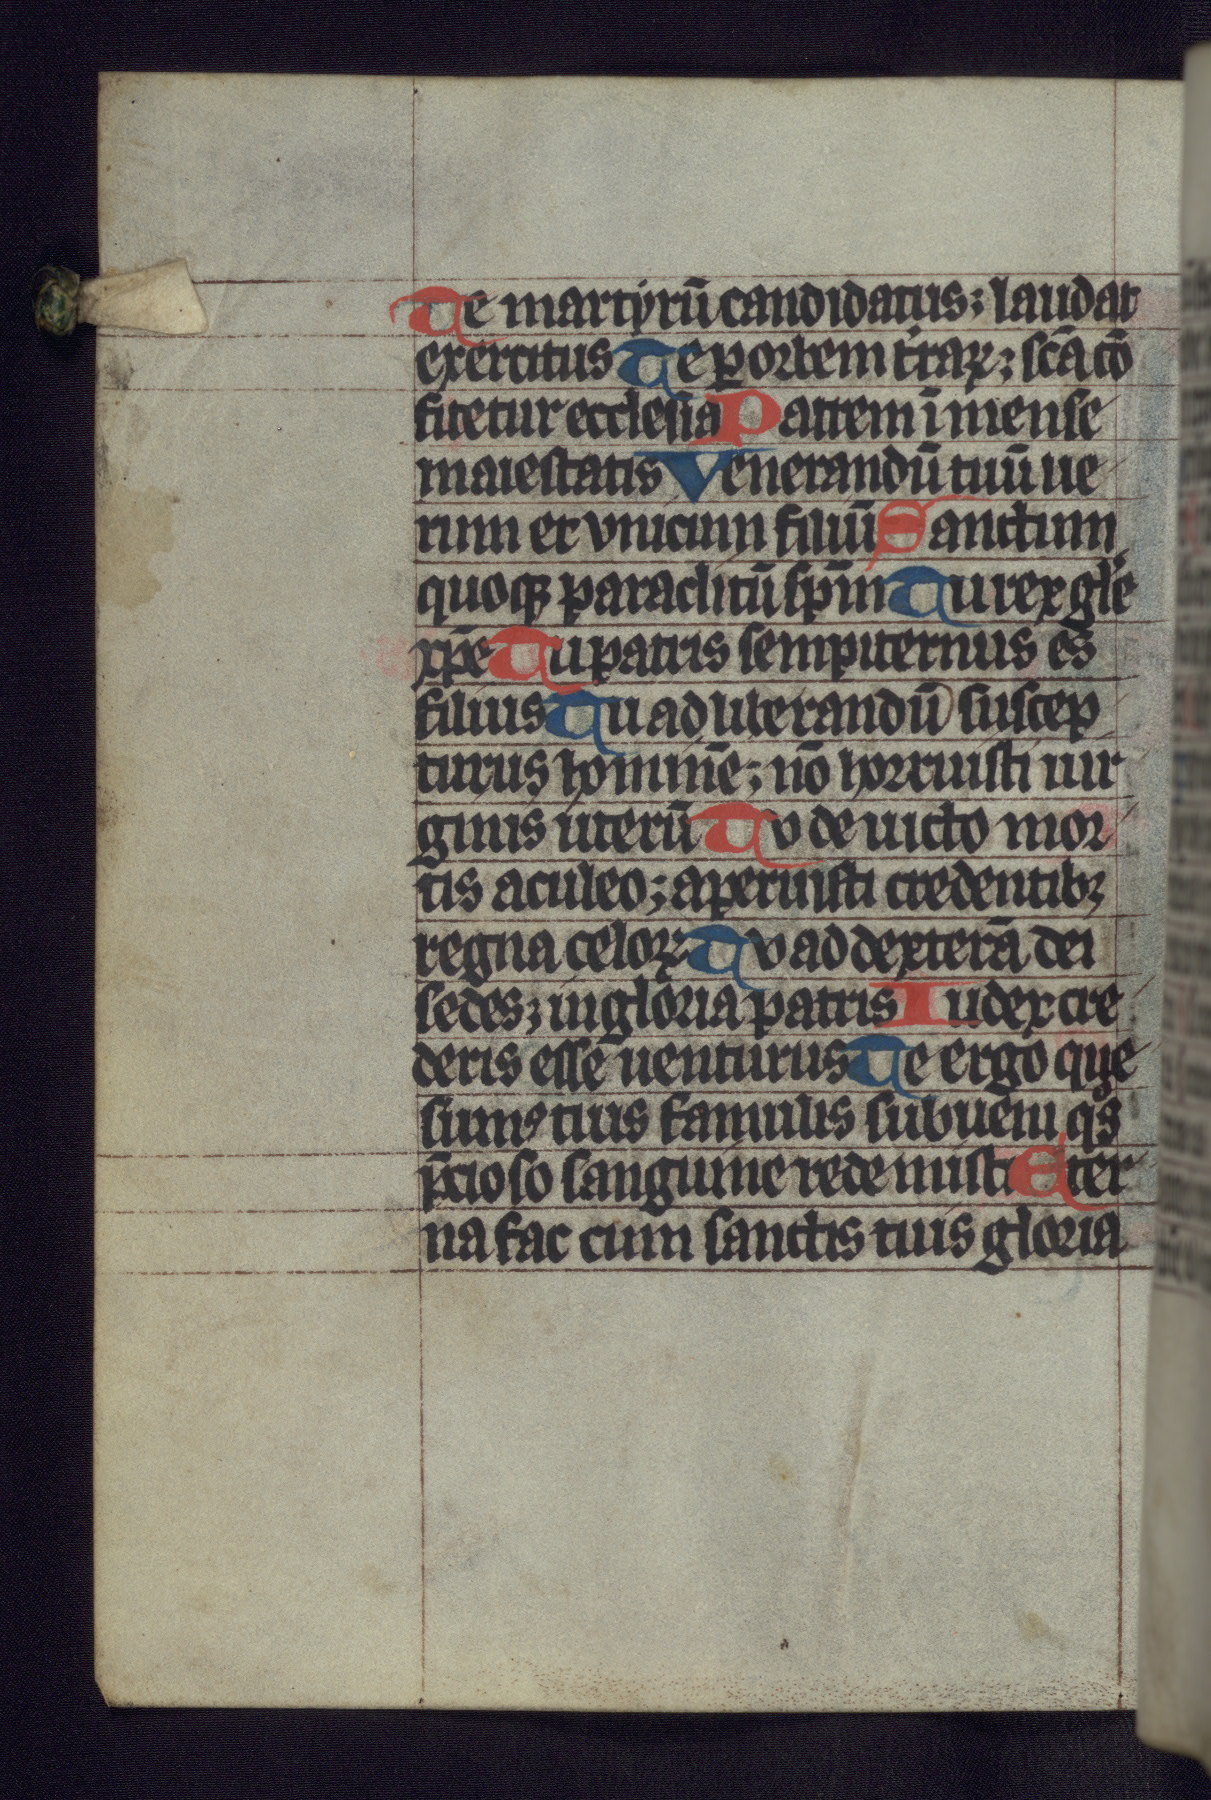 Te martyrū candidatus; laudat
exercitus Te p orbem t̄raꝝ; scā cō
fitetur ecclesia Patrem īmense
maiestatis Venerandū tuū ue
rum et vnicum filiū Sanctum
quoqꝫ paraclitū sp̄m Tu rex gl̄e
xp̄e Tu patris sempiternus es
filius Tu ad liberandū suscep
turus hominē; nō horruisti uir
ginis uterū Tv de uicto mor
tis aculeo; aperuisti credentibꝫ
regna celoꝝ Tv ad dexterā dei
sedes; in gloria patris Iudex cre
deris esse uenturus Te ergo que
sumꝰ tuis famulis subueni qͦs
p̄cioso sanguine redemisti Eter
na fac cum sanctis tuis gloria